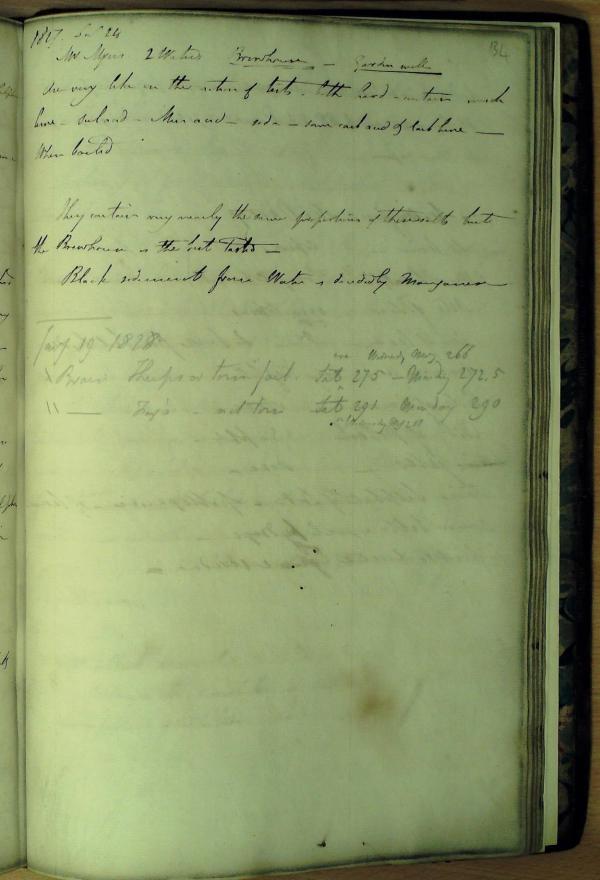 1827
34
Mr Myers 2 Waters Brewhouse - Garden well
Are very like in the action of tests. both hard - contain much
lime - sul acid - Mur acid - soda - some carb acid & carb lime -
When boiled
They contain very nearly the same proportions of these salts but
the Brewhouse is the best Tasted -
Black sediment from Water is decidedly Manganese
19 1828
Brain Sat 275 - Monday 272.5
Wednesday 266
" - - not torn Sat 291 Monday 290